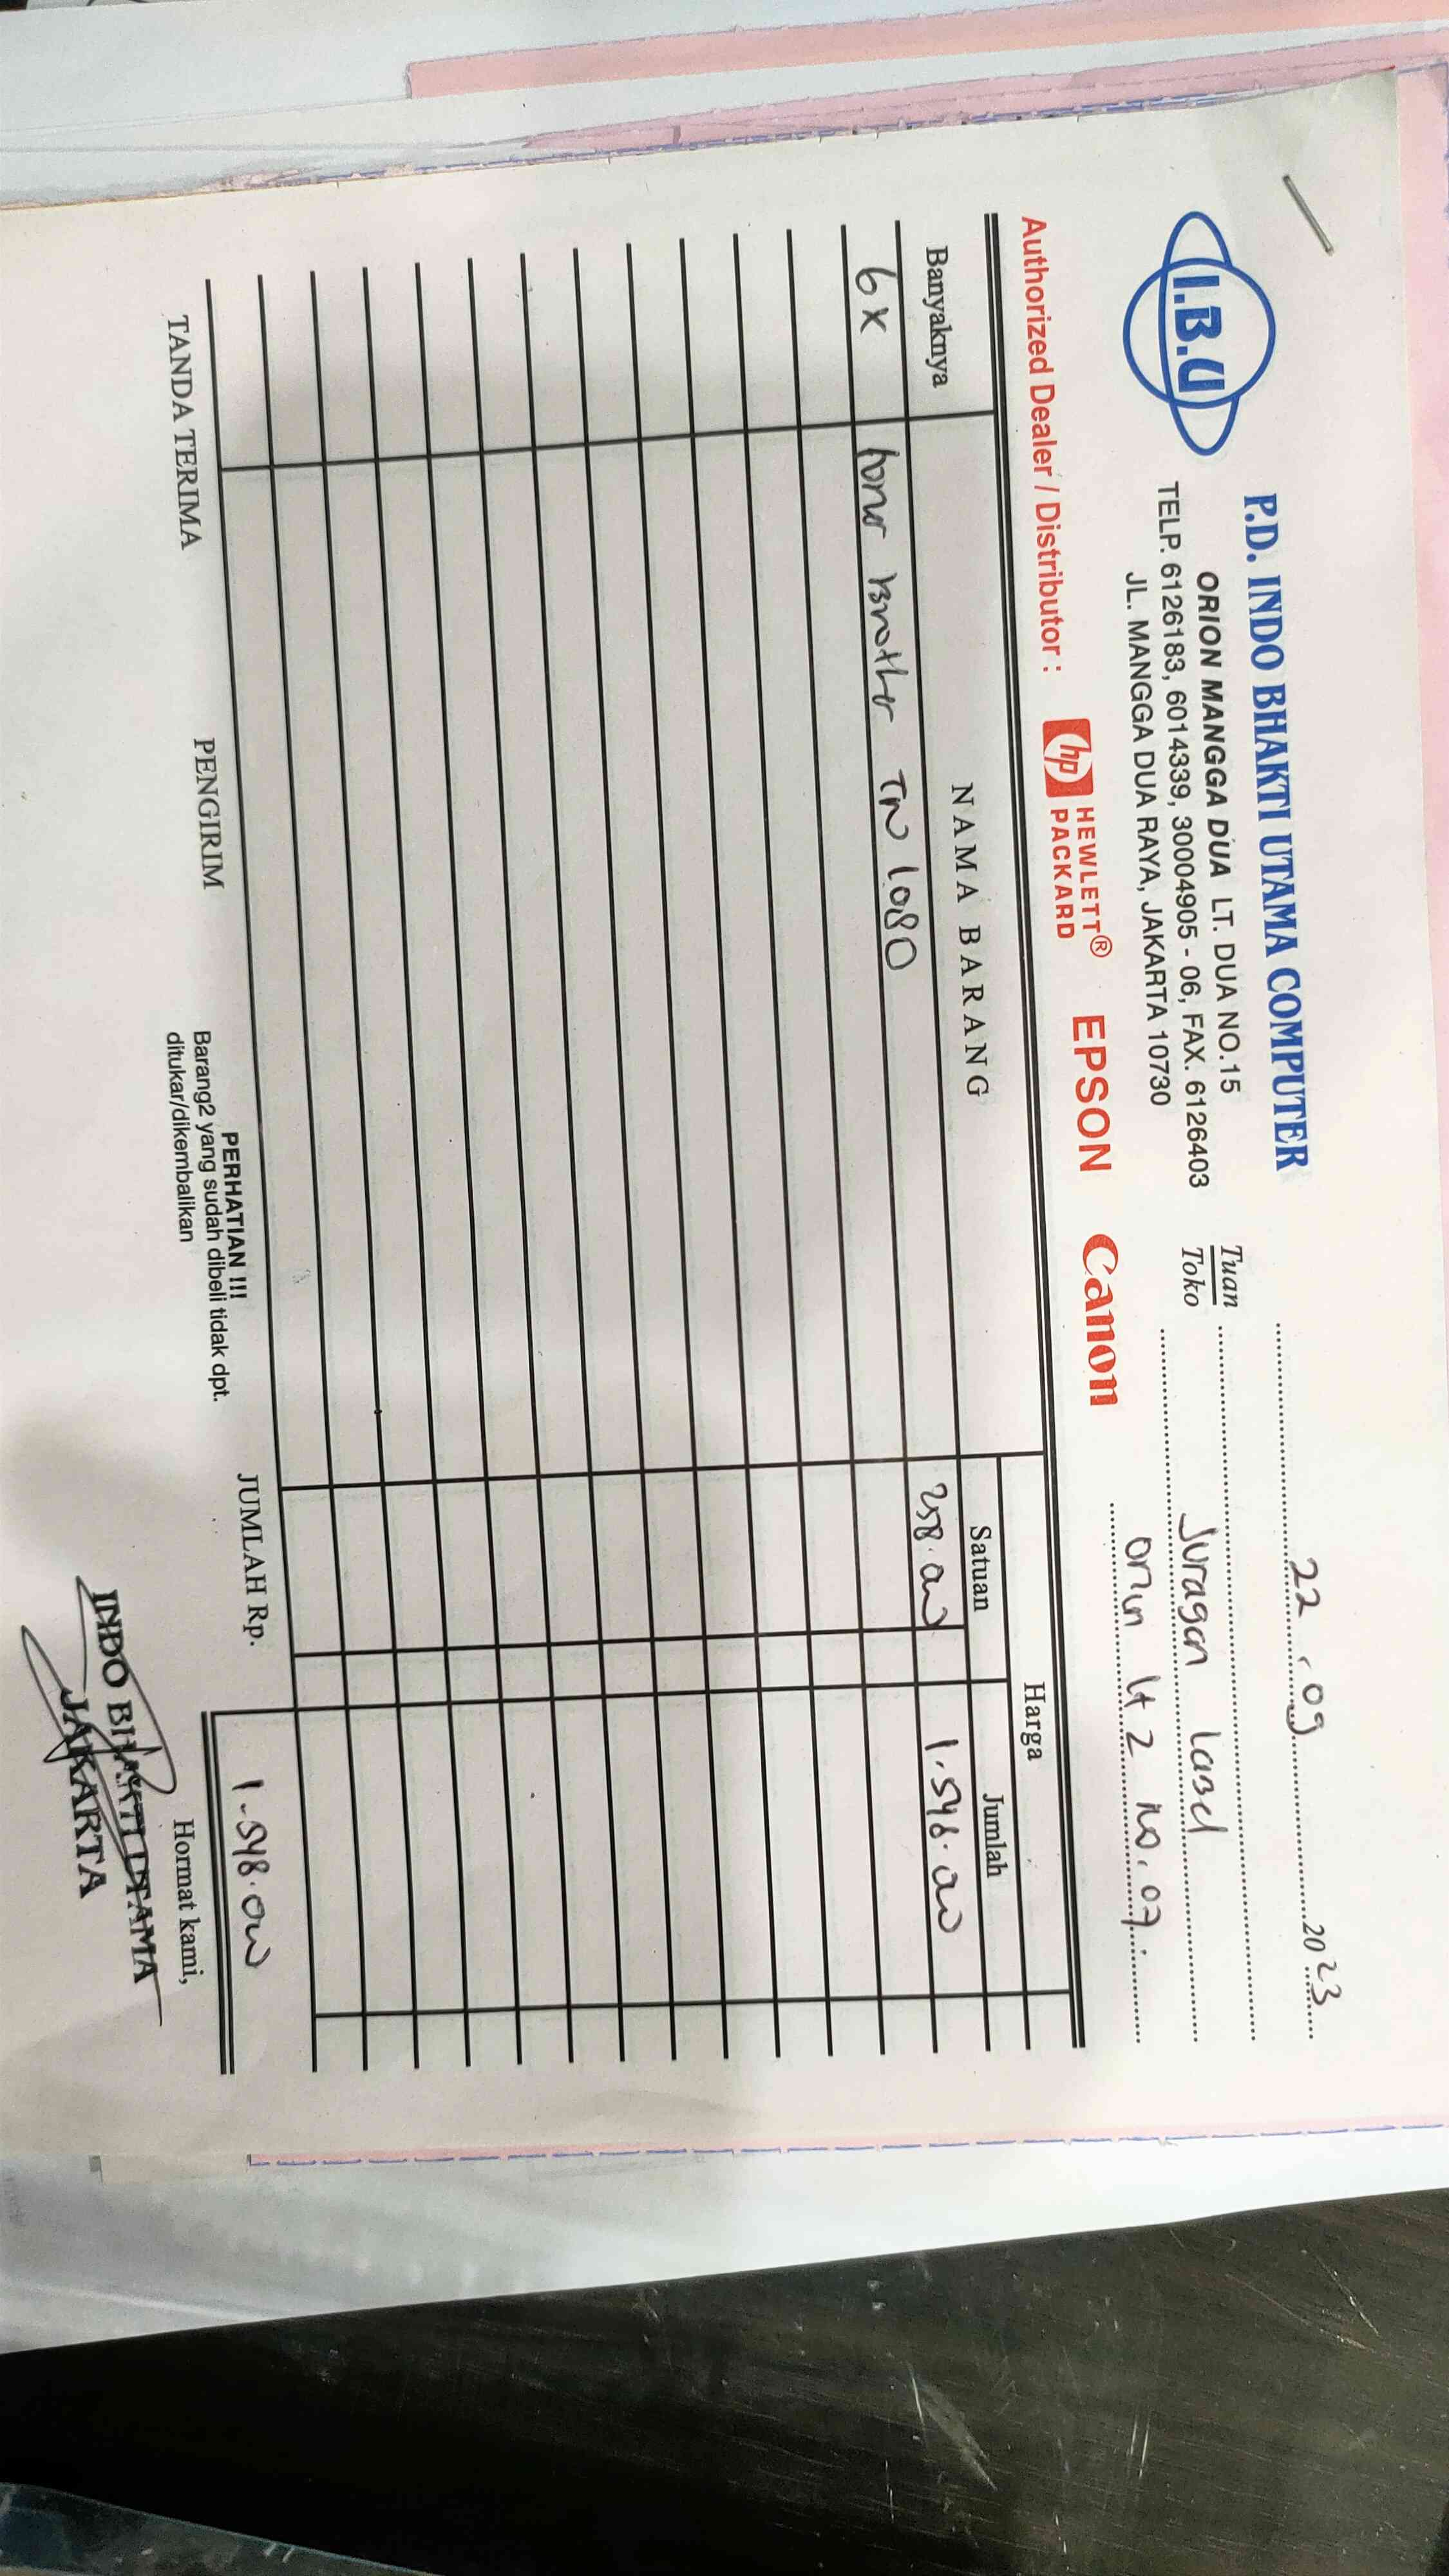 I.B.U
P.D. INDO BHAKTI UTAMA COMPUTER
ORION MANGGA DUA LT. DUA NO.15
TELP. 6126183, 6014339, 30004905 - 06, FAX. 6126403
JL. MANGGA DUA RAYA, JAKARTA 10730
22 . 09 2023
Tuan
Toko
Juragan Label
Orion lt 2 No. 07.
Authorized Dealer / Distributor : hp HEWLETT® PACKARD EPSON Canon
Banyaknya NAMA BARANG Harga
Satuan Jumlah
6 x toner Brother TN 1080 258.000 1.548.000
JUMLAH Rp. 1.548.000
TANDA TERIMA PENGIRIM
PERHATIAN !!!
Barang2 yang sudah dibeli tidak dpt.
ditukar/dikembalikan
Hormat kami,
INDO BHAKTI UTAMA
JAKARTA